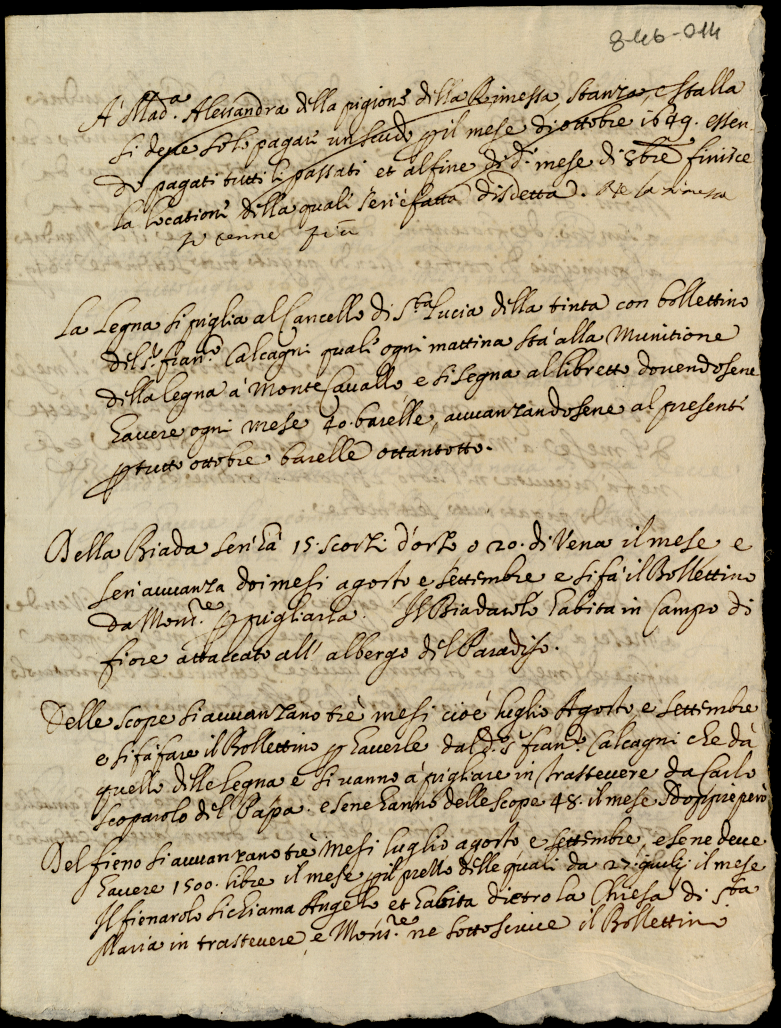 8-46-014
A' Mad.a Alessandra della pigione della Rimessa, stanza, e stalla
si deve solo pagare un scudo p il mese di ottobre 1649. essen-
do pagati tutti li passati et al fine di d.o mese di 8bre finisce
la locatione della quale seri'è fatta disdetta. 
La Legna si piglia al Cancello di S.ta Lucia della tinta con bollettino
del S.r Fran.o Calcagni quale ogni mattina stà alla Munitione
della legna à Monte Cavallo e si segna al libretto dovendosene
havere ogni mese 40. barelle, avvanzandosene al presente
p tutto ottobre barelle ottantotto.
Della Biada sen'hà 15. scorzi d'orzo o 20. di Vena il mese e
sen'avvanza doi mesi agosto e settembre e si fà il Bollettino
da Mons.re p pigliarla. Il Biadarolo habita in Campo di
fiore attaccato all' albergo del Paradiso.
Delle scope si avvanzano trè mesi cioè luglio Agosto e settembre
e si fà fare il Bollettino p haverle dal d.o S.r Fran.o Calcagni che dà
quello delle legna e si vanno à pigliare in trastevere da Carlo
scoparolo del Papa. e sene hanno delle scope 48. il mese doppie però
Del fieno si avvanzano trè mesi luglio agosto e settembre, e sene deve
havere 1500. libre il mese p il prezzo delle quali da 27. giulij il mese
Il fienarolo si chiama Angelo et habita dietro la Chiesa di S.ta
Maria in trastevere e Mons.re ne sottoscrive il Bollettino